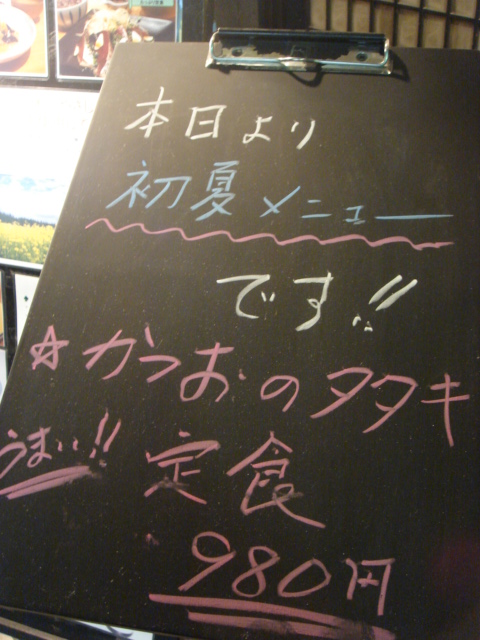 本日より
初夏メニュー
です!!
☆かつおのタタキ
うまい!! 定食
980円